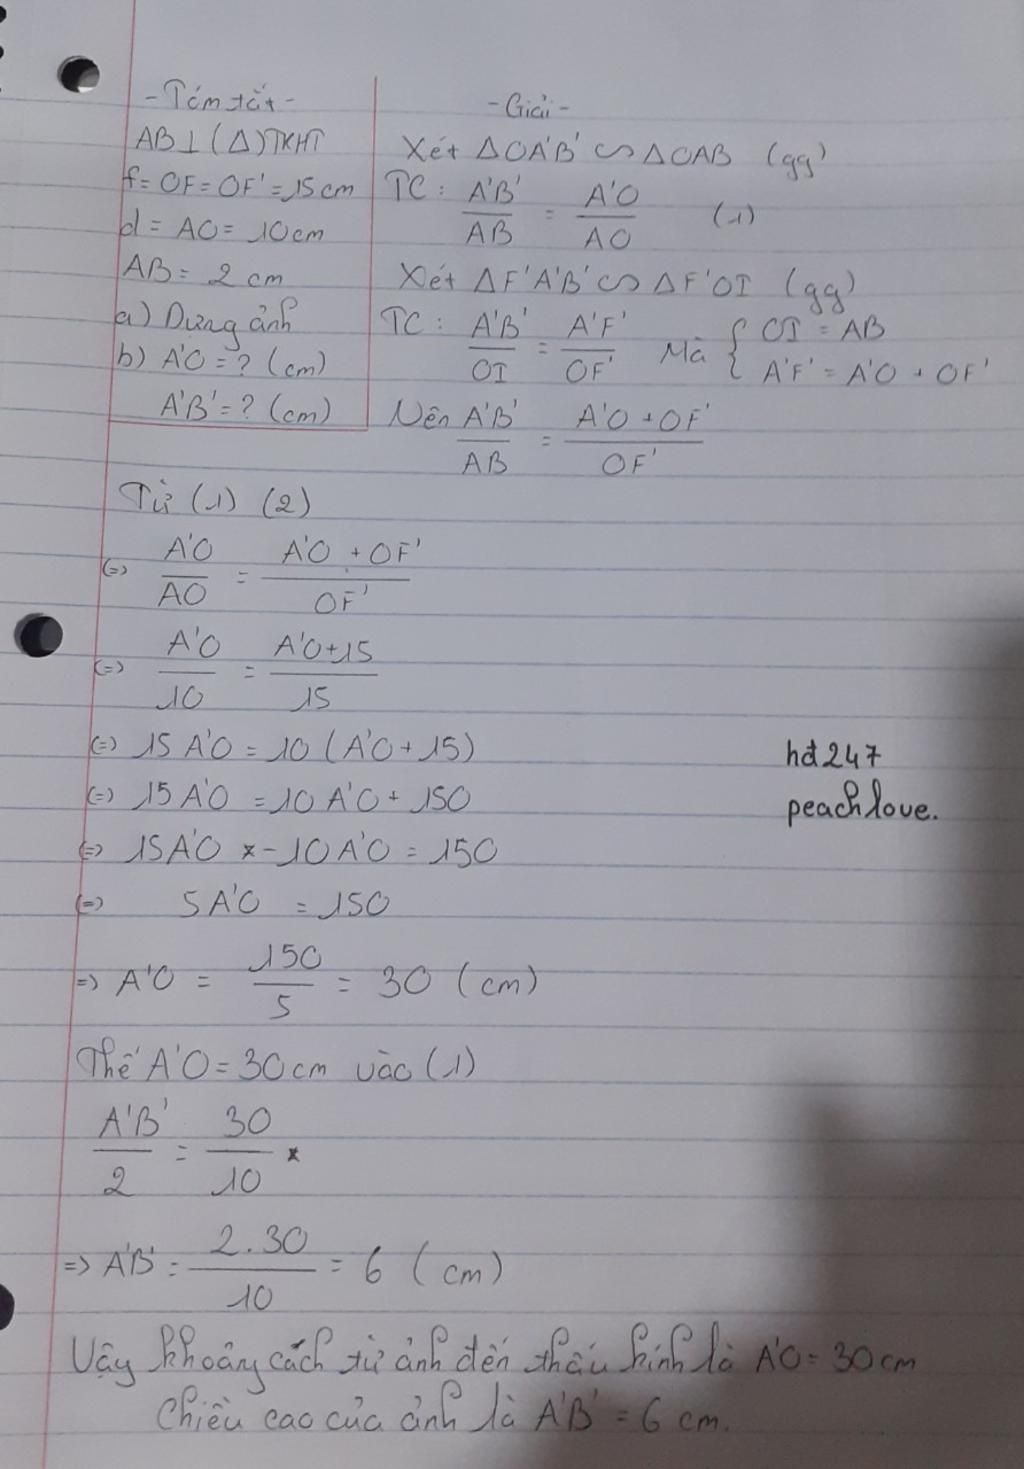 - Tóm tắt -
AB ⊥ (Δ) TKHT
f = OF = OF' = 15 cm
d = AO = 10 cm
AB = 2 cm
a) Dựng ảnh
b) A'O = ? (cm)
A'B' = ? (cm)
- Giải -
Xét ΔOA'B' ∽ ΔOAB (gg)
TC: A'B'/AB = A'O/AO (1)
Xét ΔF'A'B' ∽ ΔF'OI (gg)
TC: A'B'/OI = A'F'/OF' Mà { OI = AB
A'F' = A'O + OF'
Nên A'B'/AB = A'O + OF'/OF'
Từ (1) (2)
(=) A'O/AO = A'O + OF'/OF'
(=) A'O/10 = A'O+15/15
(=) 15 A'O = 10 (A'O + 15)
(=) 15 A'O = 10 A'O + 150
(=) 15A'O - 10 A'O = 150
(=) 5 A'O = 150
=) A'O = 150/5 = 30 (cm)
Thế A'O = 30 cm vào (1)
A'B'/2 = 30/10
=) A'B' = 2.30/10 = 6 (cm)
Vậy khoảng cách từ ảnh đến thấu kính là A'O = 30 cm
Chiều cao của ảnh là A'B' = 6 cm.
hđ247
peachlove.